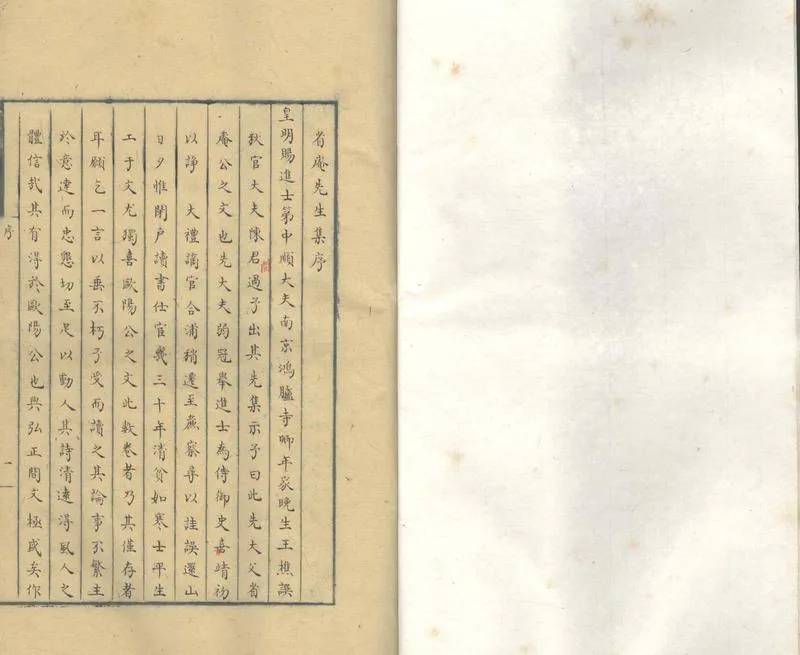 省庵先生集序
皇明賜進士第中順大夫南京鴻臚寺卿年家晚生王樵譔
狄官大夫陳君過予出其先集示予曰此先大父省
庵公之文也先大夫弱冠舉進士為侍御史嘉靖初
以諍 大禮謫官合浦稍遷至僉察尋以詿誤還山
日夕惟閉户讀書仕宦幾三十年清貧如寒士平生
工于文尤獨喜歐陽公之文此數卷者乃其僅存者
耳願乞一言以垂不朽予受而讀之其論事不繁主
於意達而忠懇切至足以動人其詩清遠得風人之
體信哉其有得於歐陽公也與弘正間文極盛矣作
序
一